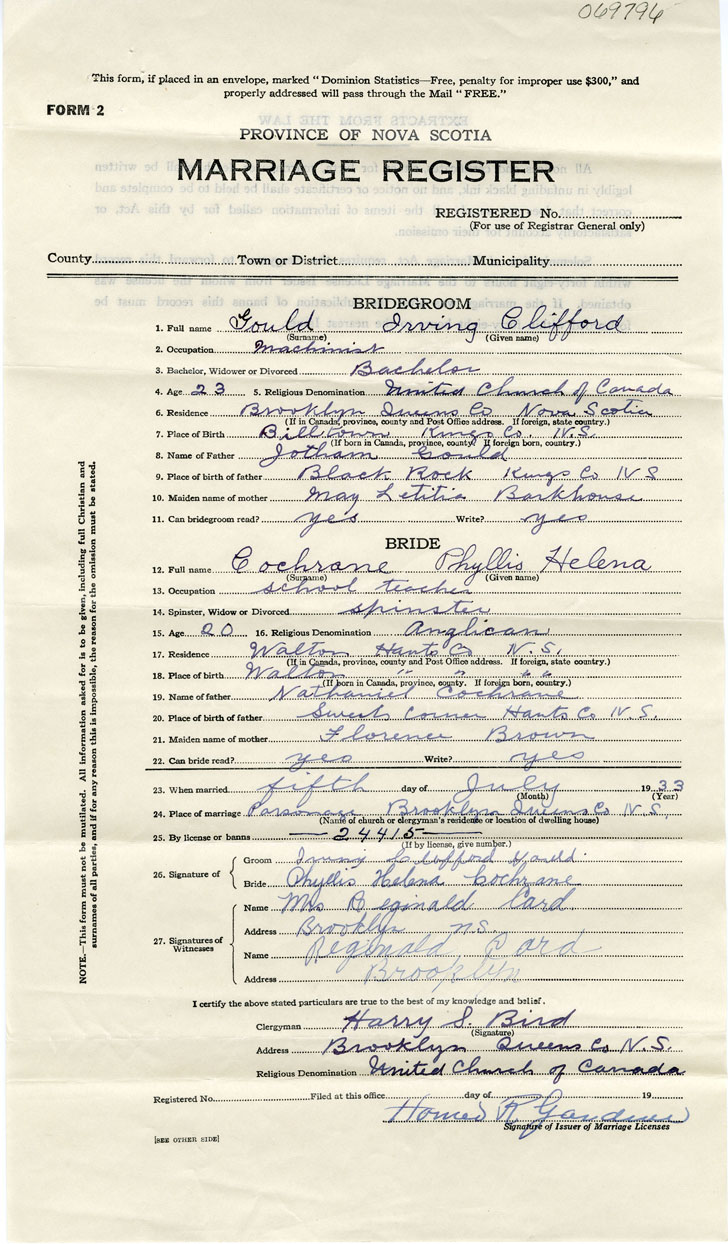 069796
This form, if placed in an envelope, marked "Dominion Statistics—Free, penalty for improper use $300," and
properly addressed will pass through the Mail "FREE."
FORM 2
PROVINCE OF NOVA SCOTIA
MARRIAGE REGISTER
REGISTERED No.
(For use of Registrar General only)
County Town or District Municipality
BRIDEGROOM
1. Full name Gould Irving Clifford
(Surname) (Given name)
2. Occupation Machinist
3. Bachelor, Widower or Divorced Bachelor
4. Age 23 5. Religious Denomination United Church of Canada
6. Residence Brooklyn Queens Co Nova Scotia
(If in Canada, province, county and Post Office address. If foreign, state country.)
7. Place of Birth Billtown Kings Co. N.S.
(If born in Canada, province, county. If foreign born, country.)
8. Name of Father Jotham Gould
9. Place of birth of father Black Rock Kings Co N S
10. Maiden name of mother May Letitia Barkhouse
11. Can bridegroom read? yes Write? yes
BRIDE
12. Full name Cochrane Phyllis Helena
(Surname) (Given name)
13. Occupation school teacher
14. Spinster, Widow or Divorced spinster
15. Age 20 16. Religious Denomination Anglican
17. Residence Walton Hants Co N.S.
(If in Canada, province, county and Post Office address. If foreign, state country.)
18. Place of birth Walton " " " "
(If born in Canada, province, county. If foreign born, country.)
19. Name of father Nathaniel Cochrane
20. Place of birth of father Sweets Corner Hants Co N.S.
21. Maiden name of mother Florence Brown
22. Can bride read? yes Write? yes
23. When married fifth day of July 1933
(Month) (Year)
24. Place of marriage Parsonage Brooklyn Queens Co N.S.
(Name of church or clergyman's residence or location of dwelling house)
25. By license or banns — 24415 —
(If by license, give number.)
26. Signature of Groom Irving Clifford Gould
Bride Phyllis Helena Cochrane
27. Signatures of Witnesses Name Mrs Reginald Card
Address Brooklyn N.S.
Name Reginald Card
Address Brooklyn
I certify the above stated particulars are true to the best of my knowledge and belief.
Clergyman Harry S. Bird
(Signature)
Address Brooklyn Queens Co N.S.
Religious Denomination United Church of Canada
Registered No. Filed at this office day of 19
Homer R Gardner
Signature of Issuer of Marriage Licenses
[SEE OTHER SIDE]
NOTE.—This form must not be mutilated. All information asked for is to be given, including full Christian and
surnames of all parties, and if for any reason this is impossible, the reason for the omission must be stated.